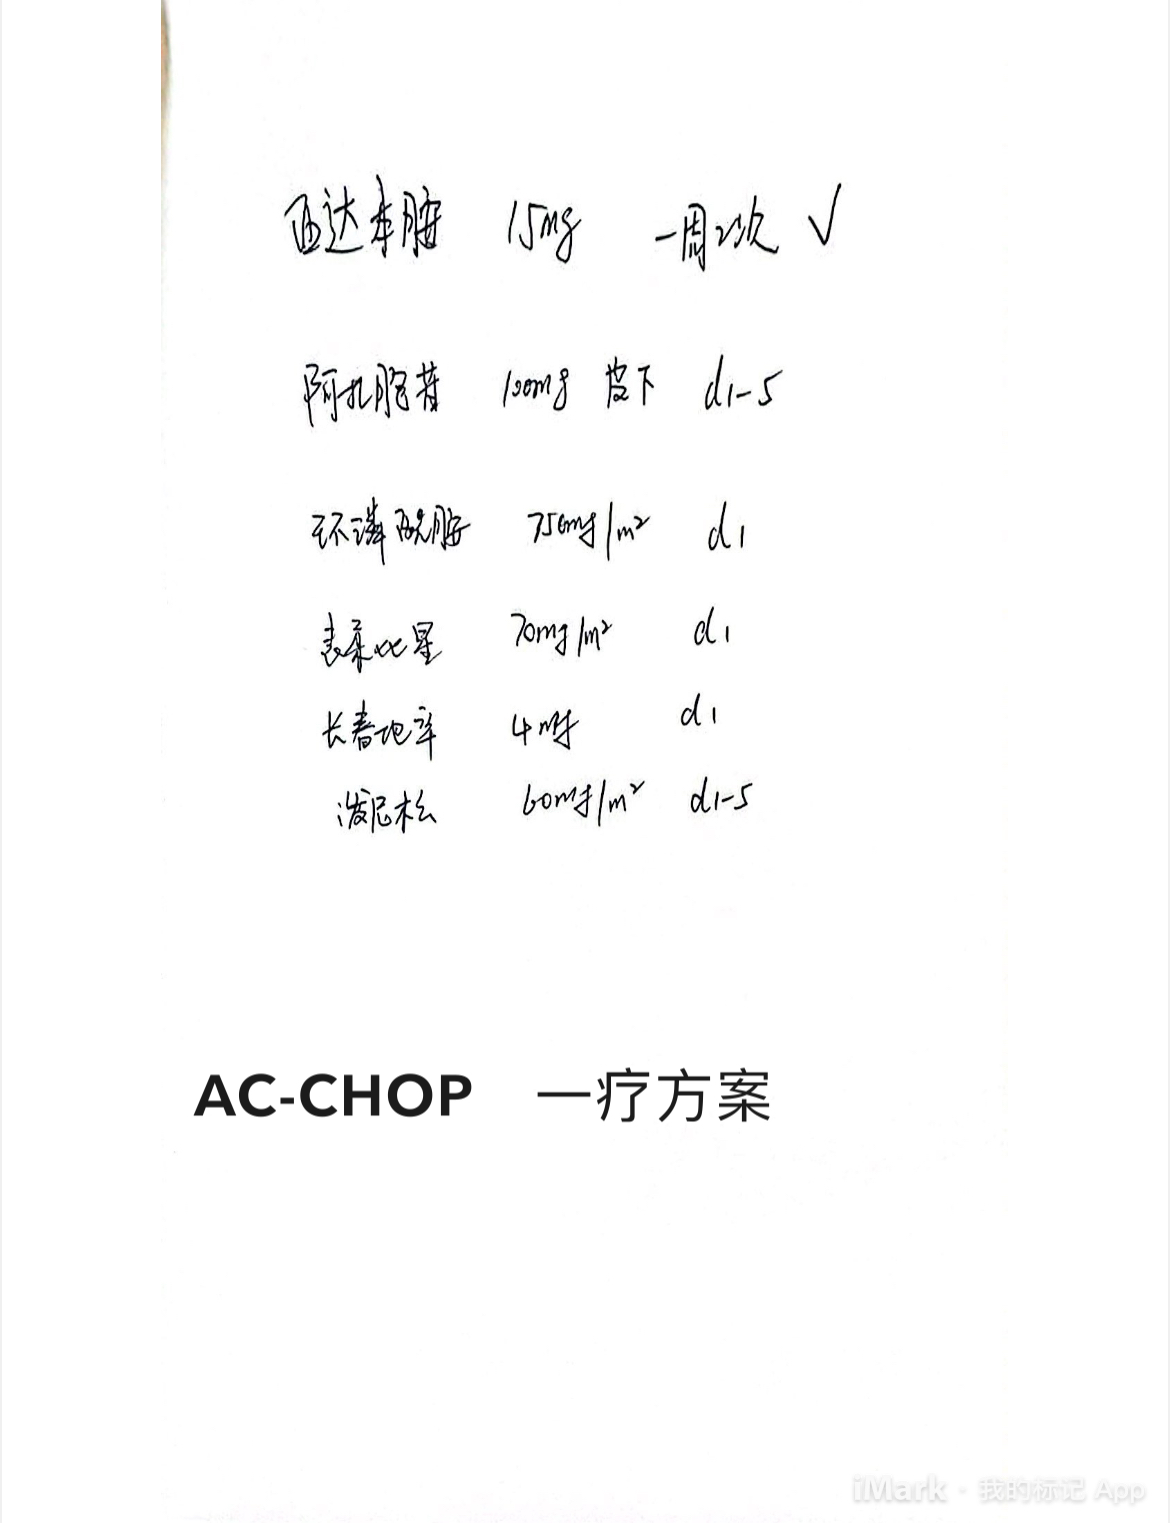 西达本胺 15mg 一周2次 √
阿扎胞苷 100mg 皮下 d1-5
环磷酰胺 750mg/m² d1
表柔比星 70mg/m² d1
长春地辛 4mg d1
泼尼松 60mg/m² d1-5
AC-CHOP 一疗方案
iMark · 我的标记 App